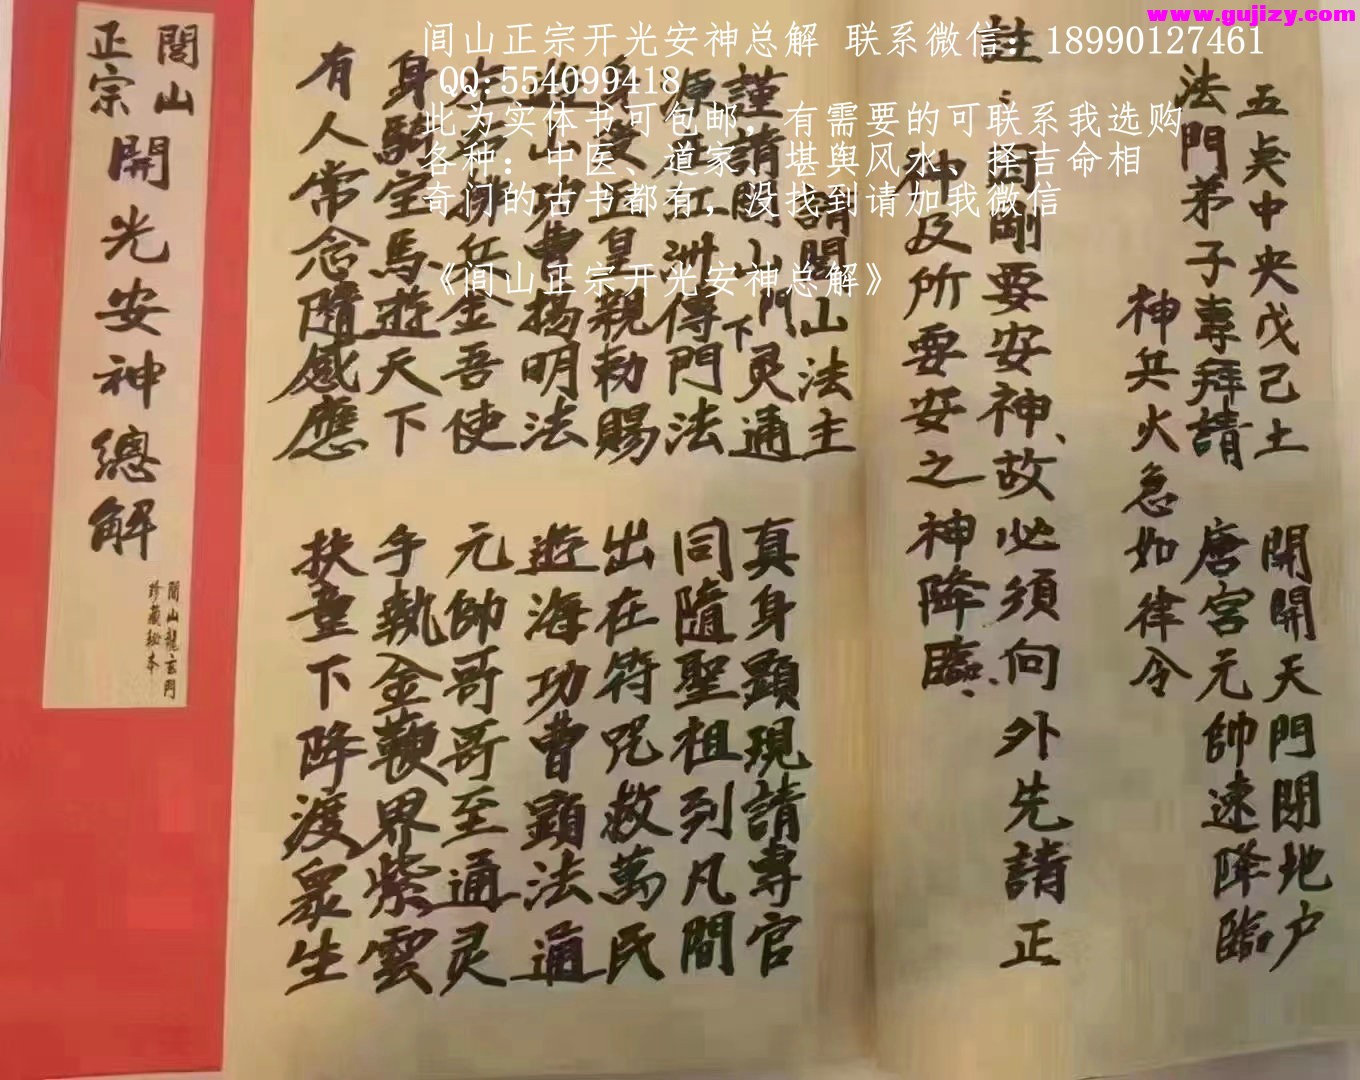 www.gujizy.com
闾山正宗开光安神总解 联系微信：18990127461
QQ:554099418
此为实体书可包邮，有需要的可联系我选购
各种：中医、道家、堪舆风水、择吉命相
奇门的古书都有，没找到请加我微信
《闾山正宗开光安神总解》
五炁中央戊己土 開開天門閉地户
法門弟子專拜請 唐宮元帥速降臨
神兵火急如律令
註：剛要安神、故必須向外先請正
神及所要安之神降臨、
請閭山法主
謹請閭山門下灵通 真身顯現請專官
洲傳門法 同隨聖祖列凡間
皇親勅賜 出在符咒救萬民
山功曹揚明法 遊海功曹顕法通
兵金吾使 元帥哥哥至通灵
身騎宝馬遊天下 手執金鞭界紫雲
有人常念隨感應 扶童下降渡眾生
閭山
正宗
開光安神總解
閭山龍玄門
珍藏秘本